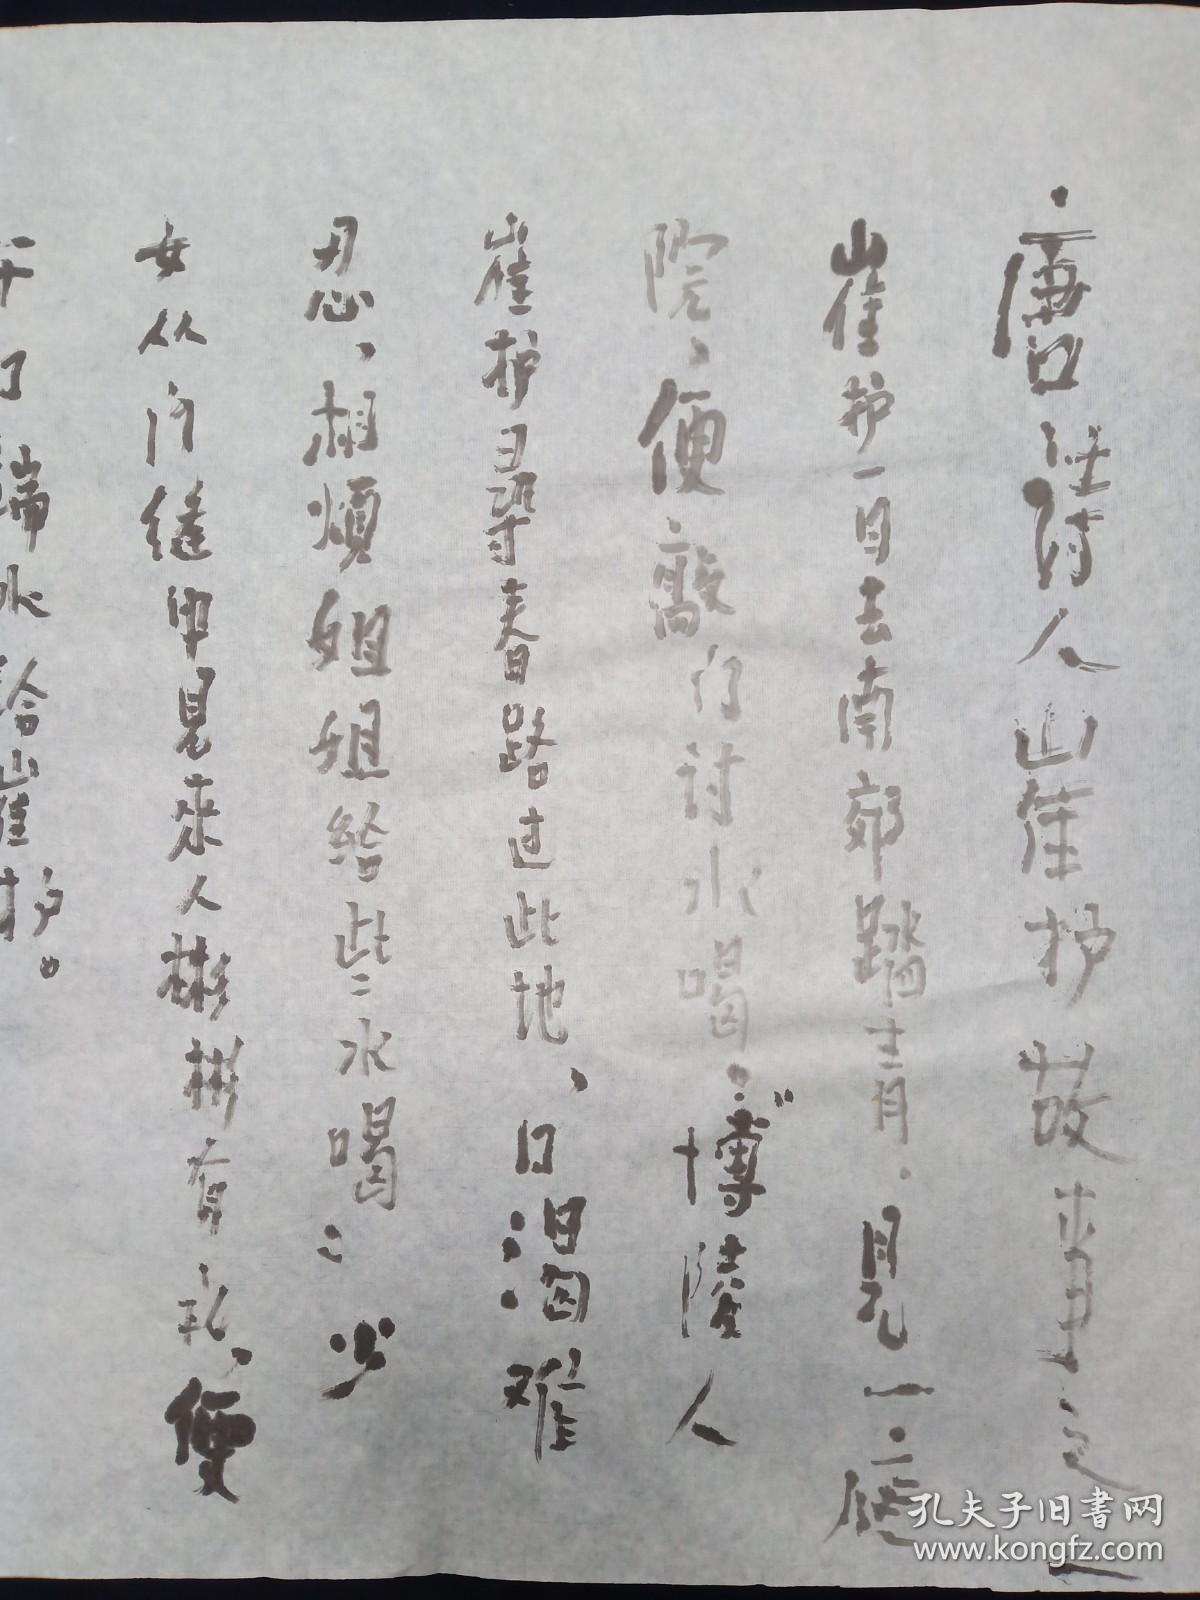 唐诗人崔护故事之一
崔护一日去南郊踏青.见一庭
院、便敲门讨水喝："博陵人
崔护寻春路过此地、口渴难
忍、相烦姐姐给些水喝"少
女从门缝中见来人彬彬有礼、便
开门端水给崔护。
孔夫子旧书网
www.kongfz.com